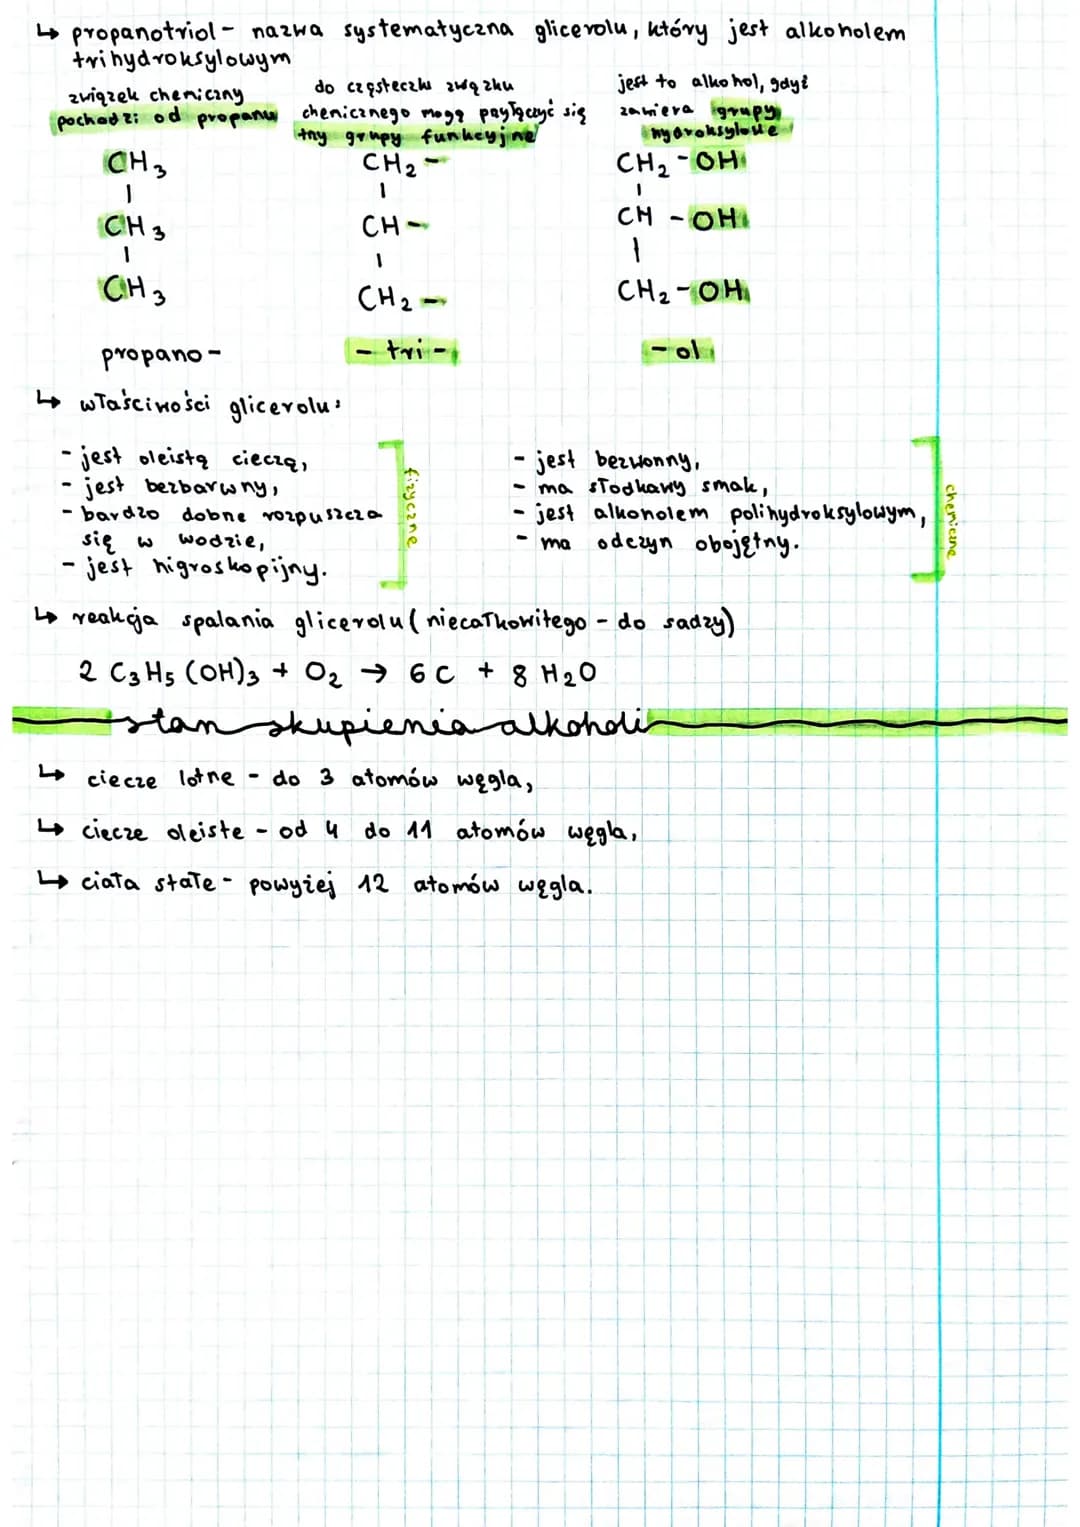 ↳ propanotriol - nazwa systematyczna glicerolu, który jest alkoholem
trihydroksylowym
związek chemiczny
pochodzi od propanu
CH3
|
CH3
|
CH3
propano-
do cząsteczki związku
chemicznego mogą przyłączyć się
trzy grupy funkcyjne
CH2 -
|
CH -
|
CH2 -
- tri -
jest to alkohol, gdyż
zawiera grupy
hydroksylowe
CH2 - OH
|
CH - OH
|
CH2 - OH
- ol
↳ właściwości glicerolu:
- jest oleistą cieczą,
- jest bezbarwny,
- bardzo dobrze rozpuszcza
się w wodzie,
- jest higroskopijny.
fizyczne
- jest bezwonny,
- ma słodkawy smak,
- jest alkoholem polihydroksylowym,
- ma odczyn obojętny.
chemiczne
↳ reakcja spalania glicerolu (niecałkowitego - do sadzy)
2 C3H5(OH)3 + O2 → 6C + 8H2O
stan skupienia alkoholi
↳ ciecze lotne - do 3 atomów węgla,
↳ ciecze oleiste - od 4 do 11 atomów węgla,
↳ ciała stałe - powyżej 12 atomów węgla.